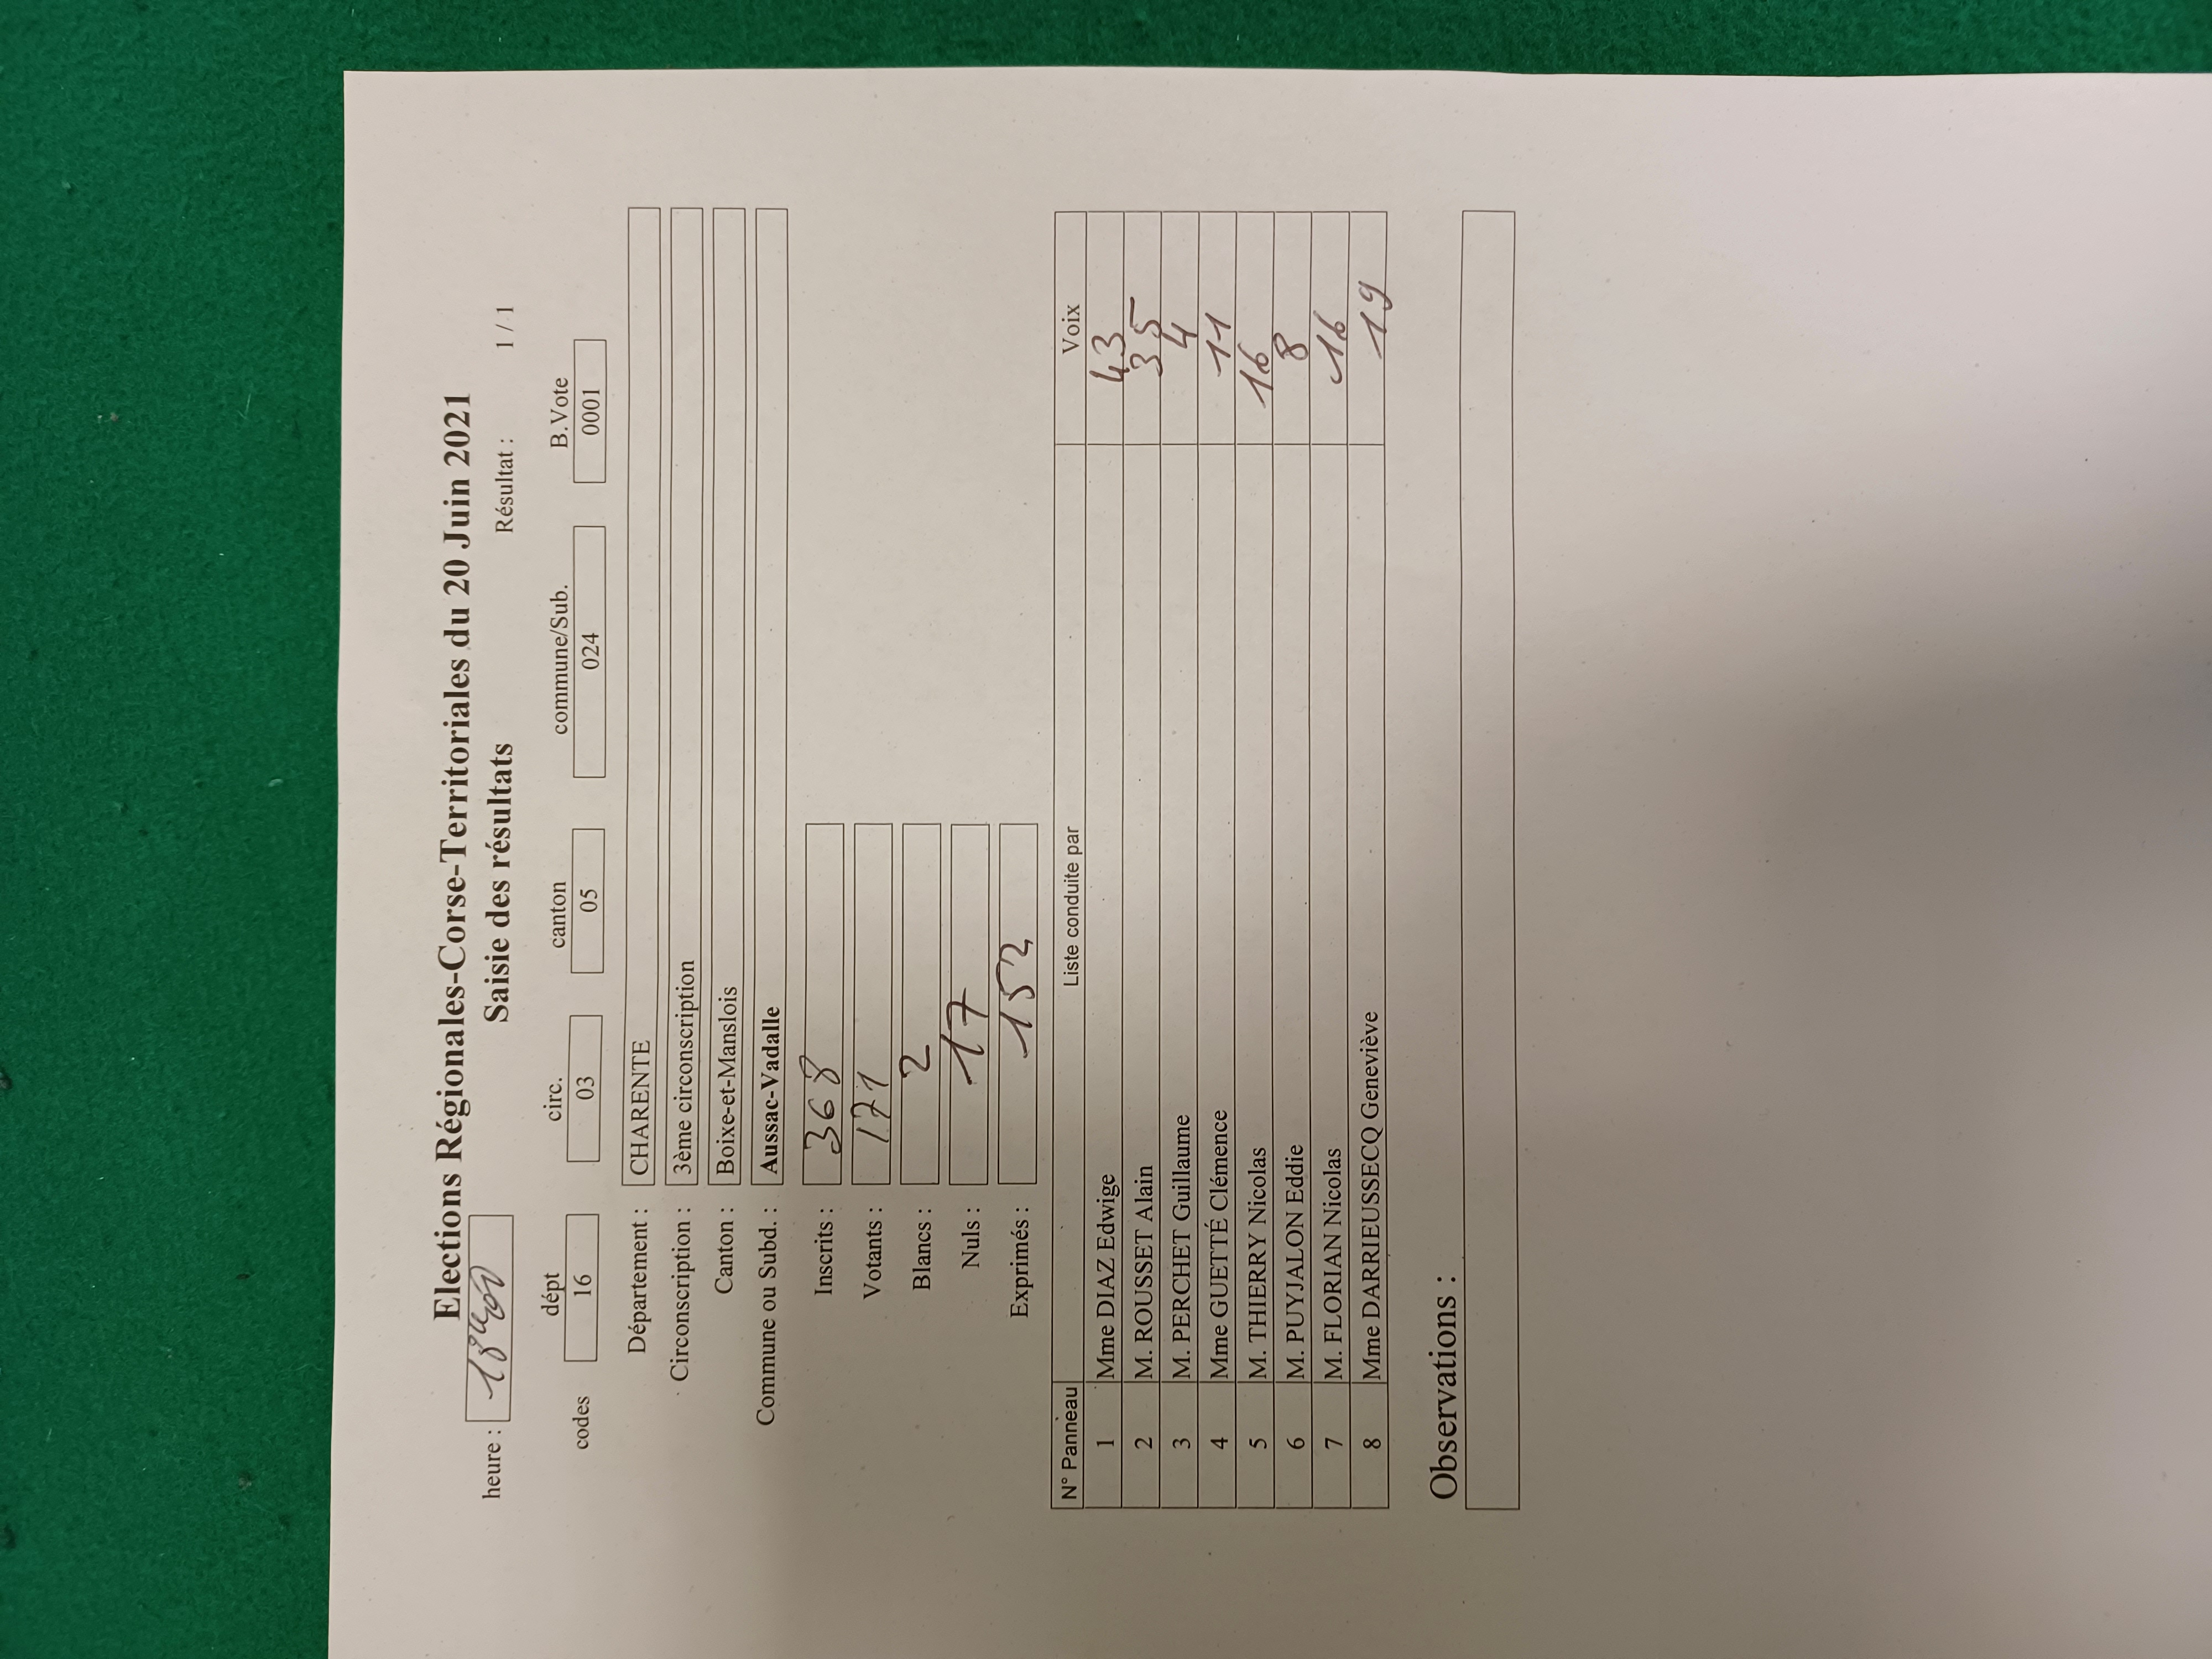 Elections Régionales-Corse-Territoriales du 20 Juin 2021
Saisie des résultats
heure : Résultat : 1 / 1
codes dépt 16 circ. 03 canton 05 commune/Sub. 024 B.Vote 0001
Département : CHARENTE
Circonscription : 3ème circonscription
Canton : Boixe-et-Manslois
Commune ou Subd. : Aussac-Vadalle
Inscrits : 368
Votants : 171
Blancs : 2
Nuls : 17
Exprimés : 152
N° Panneau Liste conduite par Voix
1 Mme DIAZ Edwige 43
2 M. ROUSSET Alain 35
3 M. PERCHET Guillaume 4
4 Mme GUETTÉ Clémence 11
5 M. THIERRY Nicolas 16
6 M. PUYJALON Eddie 8
7 M. FLORIAN Nicolas 16
8 Mme DARRIEUSSECQ Geneviève 19
Observations :